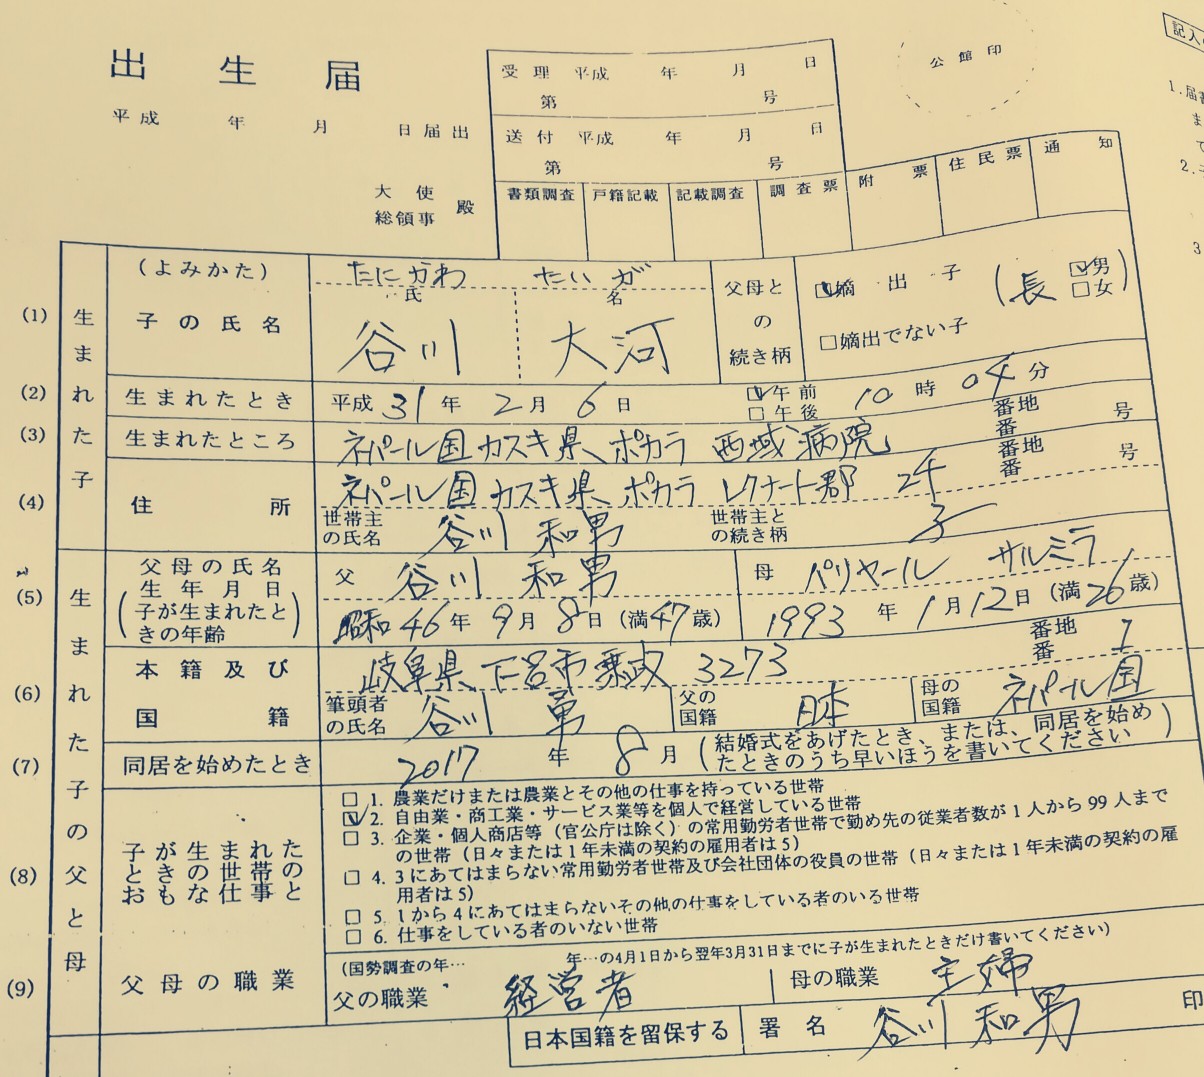 出生届
平成 年 月 日届出
大使
総領事 殿
受理 平成 年 月 日
第 号
送付 平成 年 月 日
第 号
書類調査 戸籍記載 記載調査 調査票 附票 住民票 通知
公館印
記入の
1.届書
2.
3
(1) 生まれた子
(よみかた) たにかわ たいが
氏 名
子の氏名 谷川 大河
父母との続き柄
☑嫡出子 (長 ☑男 □女)
□嫡出でない子
(2) 生まれたとき 平成31年2月6日 ☑午前 □午後 10時04分
(3) 生まれたところ ネパール国カスキ県ポカラ 西域病院 番地 番 号
(4) 住所 ネパール国カスキ県ポカラ レクナート郡 24 番地 番 号
世帯主の氏名 谷川 和男 世帯主との続き柄 子
(5) 生まれた子の父と母
父母の氏名
生年月日
(子が生まれたときの年齢)
父 谷川 和男 母 パリヤール サルミラ
昭和46年9月8日(満47歳) 1993年1月12日(満26歳)
(6) 本籍及び国籍
岐阜県下呂市乗政 3273 番地 番 1
筆頭者の氏名 谷川 勇 父の国籍 日本 母の国籍 ネパール国
(7) 同居を始めたとき 2017年8月 (結婚式をあげたとき、または、同居を始めたときのうち早いほうを書いてください)
(8) 子が生まれたときの世帯のおもな仕事と
□1. 農業だけまたは農業とその他の仕事を持っている世帯
☑2. 自由業・商工業・サービス業等を個人で経営している世帯
□3. 企業・個人商店等(官公庁は除く)の常用勤労者世帯で勤め先の従業者数が1人から99人まで
の世帯(日々または1年未満の契約の雇用者は5)
□4. 3にあてはまらない常用勤労者世帯及び会社団体の役員の世帯(日々または1年未満の契約の雇
用者は5)
□5. 1から4にあてはまらないその他の仕事をしている者のいる世帯
□6. 仕事をしている者のいない世帯
(9) 父母の職業
(国勢調査の年… 年…の4月1日から翌年3月31日までに子が生まれたときだけ書いてください)
父の職業 経営者 母の職業 主婦
日本国籍を留保する 署名 谷川 和男 印